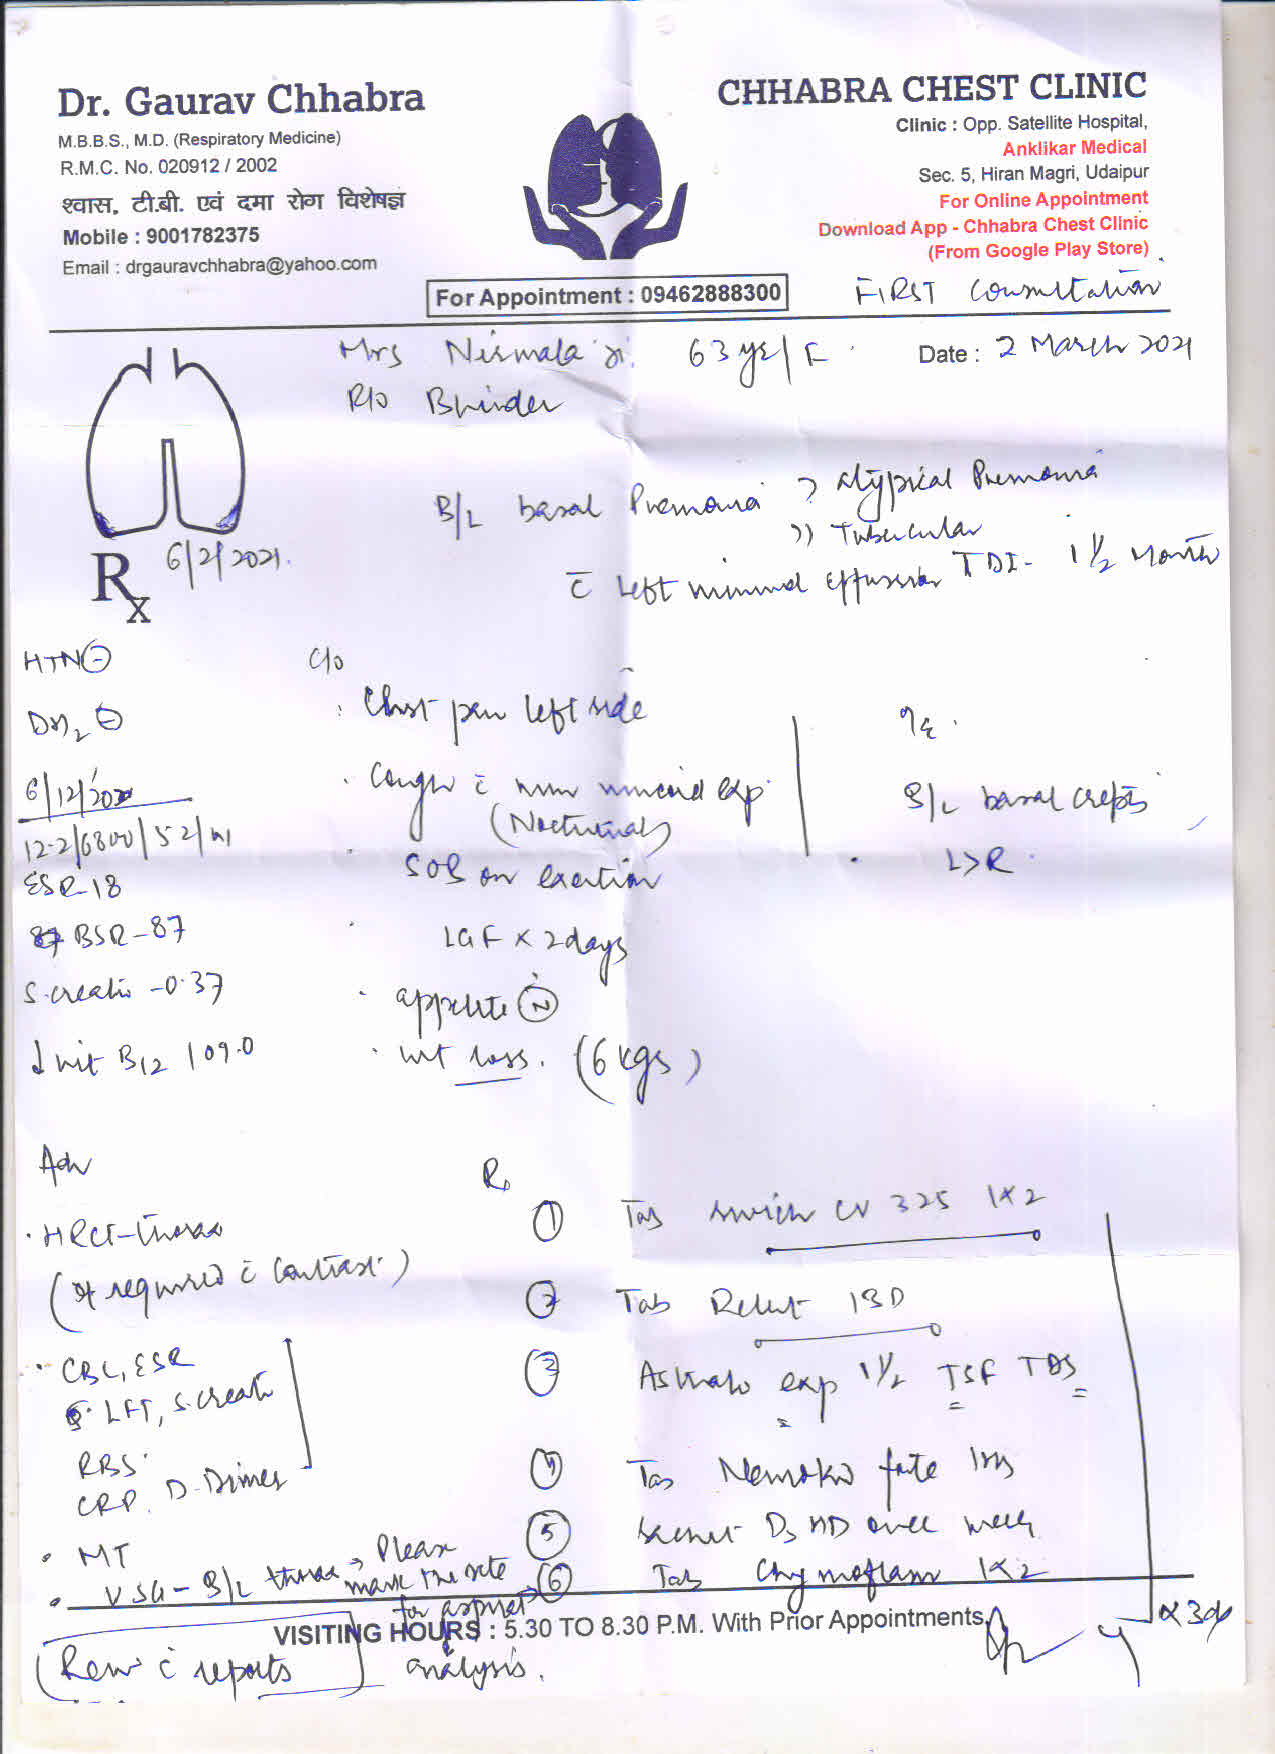 Dr. Gaurav Chhabra
M.B.B.S., M.D. (Respiratory Medicine)
R.M.C. No. 020912 / 2002
श्वास, टी.बी. एवं दमा रोग विशेषज्ञ
Mobile : 9001782375
Email : drgauravchhabra@yahoo.com
CHHABRA CHEST CLINIC
Clinic : Opp. Satellite Hospital,
Anklikar Medical
Sec. 5, Hiran Magri, Udaipur
For Online Appointment
Download App - Chhabra Chest Clinic
(From Google Play Store)
For Appointment : 09462888300
FIRST Consultation
Mrs Nirmala 63 yrs/F
Date : 2 March 2021
R/o Bhinder
B/L basal Pneumonia ? atypical Pneumonia
?? Tubercular
c̄ left minimal effusion TDI- 1 1/2 Month
Rx 6/2/2021.
HTN ⊖
DM2 ⊖
6/12/2020
12.2/6800/52/41
ESR-18
BSR-87
S.creatin -0.37
↓ vit B12 109.0
C/o
Chest pain left side
Cough c̄ mucoid exp
(Nocturnal)
SOB on exertion
LGF x 2 days
appetite (N)
wt loss. (6 kgs)
O/E
B/L basal crepts
L>R
Adv
HRCT-thorax
(If required c̄ Contrast)
CBC, ESR
LFT, S.creatin
RBS
CRP. D-Dimer
MT
USG - B/L thorax → Please
mark the site
for aspirat
analysis.
Review c̄ reports
R
① Tab CV 325 1x2
② Tab 1BD
③ exp 1 1/2 TSF TDS
④ Tab forte
⑤ D3 once week
⑥ Tab Chymoflam 1x2
VISITING HOURS : 5.30 TO 8.30 P.M. With Prior Appointments